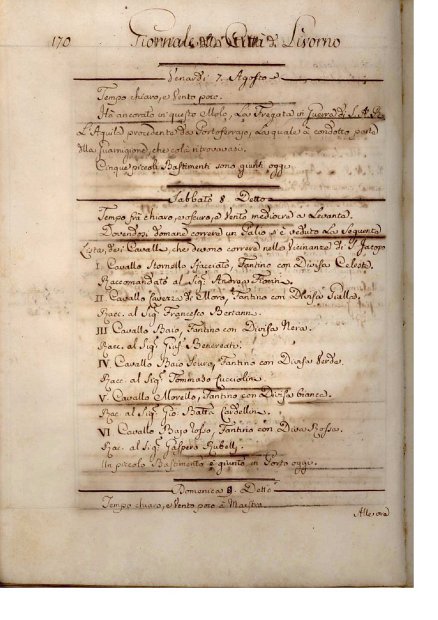 170 Giornale della Città di Livorno
Venardi 7. Agosto
Tempo chiaro, e Vento poco.
Ha ancorato in questo Molo, La Fregata di Guerra di S. A. R.
L'Aquila proveniente da Portoferrajo, La quale à condotto parte
della Guarnigione, che colà ritrovavasi.
Cinque piccoli Bastimenti sono giunti oggi.
Sabbato 8. Detto
Tempo frà chiaro, e oscuro, e Vento mediocre a Levante.
Dovendosi domane correre un Palio s'è veduto La Seguente
Lista, dei Cavalli, che devono correre nelle Vicinanze di S. Jacopo
I. Cavallo Stornello, Fantino con Divisa Celeste.
Raccomandato al Sig. Andrea
II Cavallo di Moro, Fantino con Divisa Gialla.
Racc. al Sig. Francesco
III Cavallo Bajo, Fantino con Divisa Nera.
Racc. al Sig. Gius.
IV. Cavallo Bajo Scuro, Fantino con Divisa Verde.
Racc. al Sig. Tommaso Lucciolin
V. Cavallo Morello, Fantino con Divisa bianca.
Rac. al Sig. Gio. Batt.
VI Cavallo Bajo rosso, Fantino con Divisa Rossa.
Rac. al Sig. Gaspero
Un piccolo Bastimento è giunto in Porto oggi.
Domenica 8. Detto
Tempo chiaro, e Vento poco à Maestro.
Alle ore